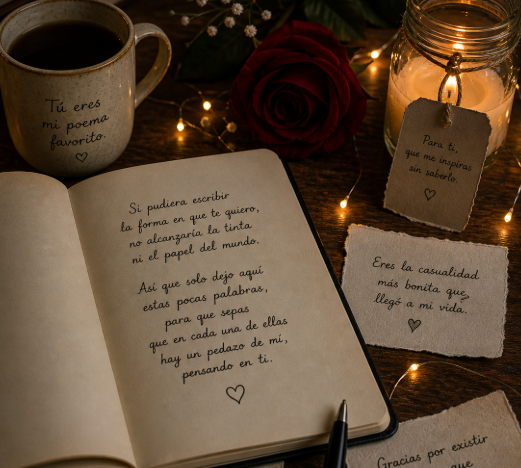 Tú eres
mi poema
favorito.
Para ti,
que me inspiras
sin saberlo.
Si pudiera escribir
la forma en que te quiero,
no alcanzaría la tinta
ni el papel del mundo.
Así que solo dejo aquí
estas pocas palabras,
para que sepas
que en cada una de ellas
hay un pedazo de mí,
pensando en ti.
Eres la casualidad
más bonita que
llegó a mi vida.
Gracias por existir
que